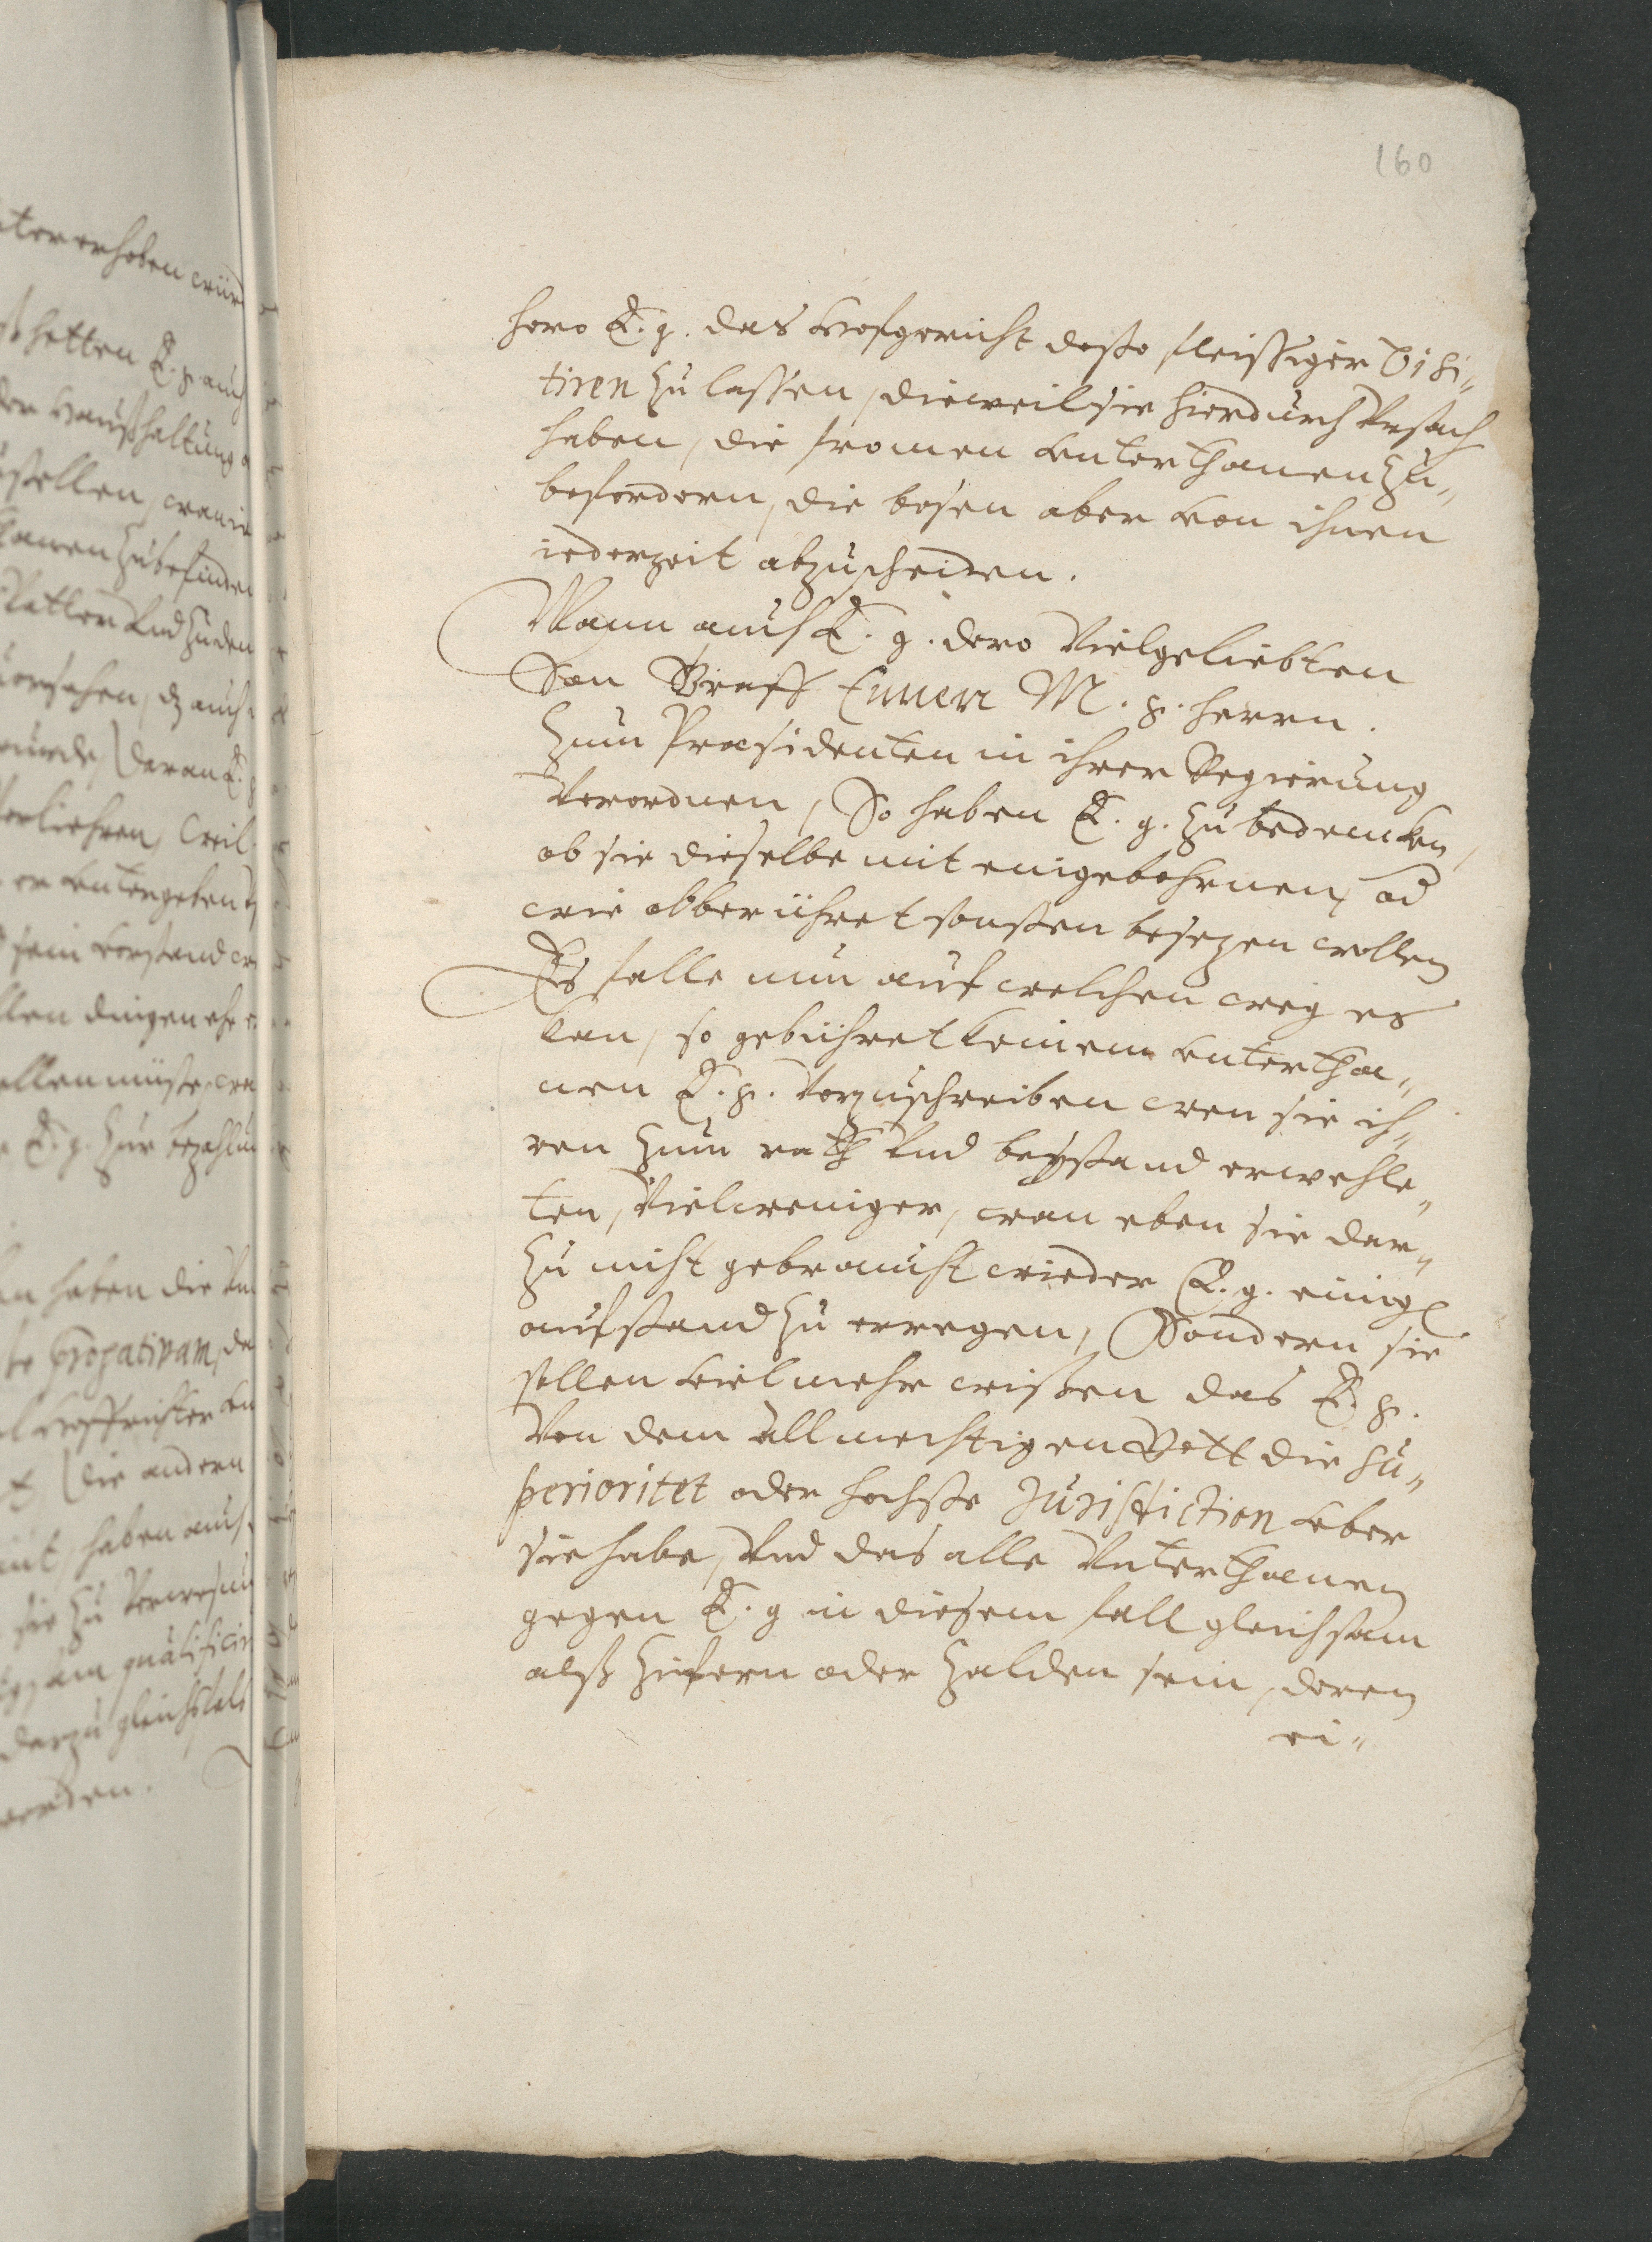 160
hero E. g. das Hofgericht desto fleissiger visi„
tiren zu lassen, dieweil sie hierdurch Ursach
haben, die fromen Unterthanen zu„
befordern, die bosen aber von ihnen
iederzeit abzuscheiden.
Wann auch E. g. dero Vielgeliebten
Son Graff Ennen M. g. herrn.
zum Præsidenten in ihrer Regierung
verordnen, So haben E. g. zu bedencken,
ob sie dieselbe mit eingebohrnen, od
wie obberühret sonsten besezen wollen
Es falle nun auf welchen weg es
kan, so gebühret keinem Untertha„
nen E. g. vorzuschreiben wen sie ih„
ren zum rath und beystand erwehle„
ten, Vielweniger, wan eben sie dar„
zu nicht gebraucht wieder E. g. einig
aufstand zu erregen, Sondern sie
sollen vielmehr wissen das E. g.
Von dem allmechtigen Gott die Su„
perioritet oder hochste Jurisdiction uber
sie habe, Und das alle Unterthanen
gegen E. g in diesem fall gleichsam
alß Ziefern oder Zalden sein, deren
ei„